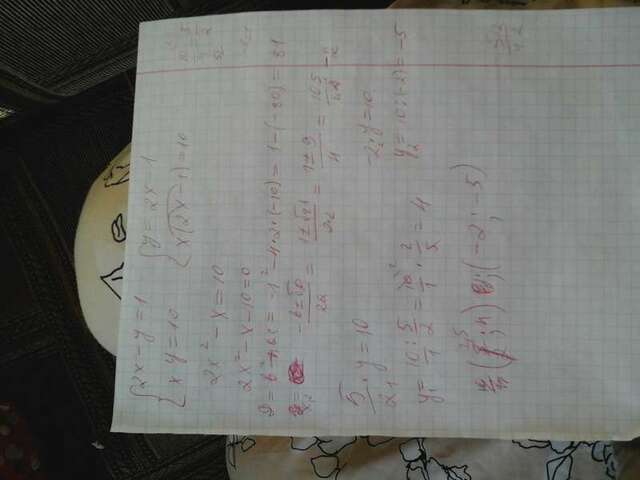 {2x-y=1 {y=2x-1
{xy=10 {x(2x-1)=10
2x²-x=10
2x²-x-10=0
= -1²-4·2·(-10)= 1-(-80)= 81
-b±√D/2a = 1±√81/2·2 = 1±9/4 = 10 5/4 2 -2
5/2 · y=10 -2·y=10
y₁= 10/1 : 5/2 = 10/1 · 2/5 = 4 y₂= 10:(-2)= -5
2,5
( ;4) ;(-2;-5)